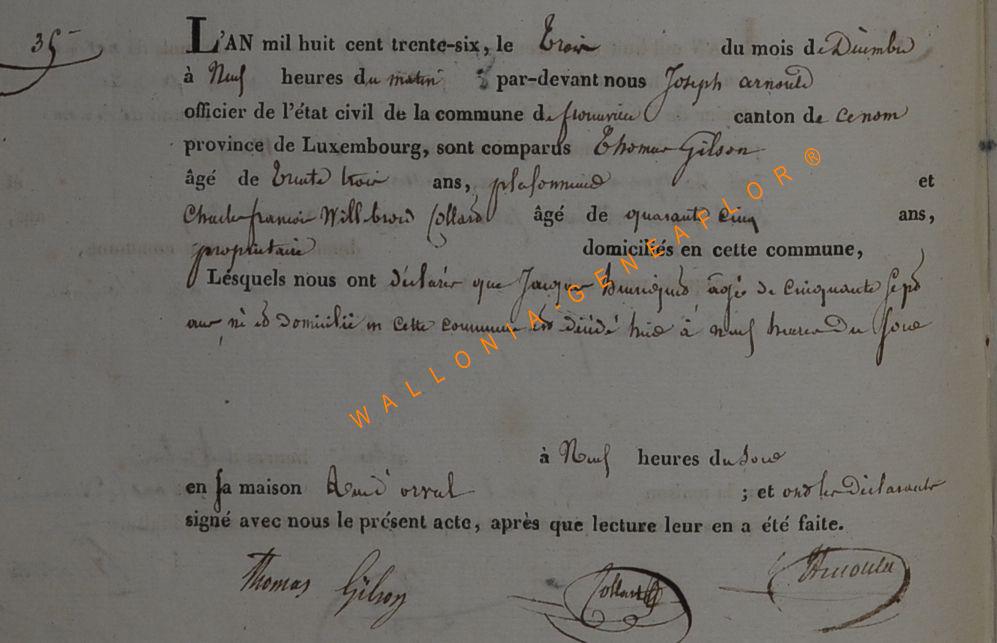 35
L'AN mil huit cent trente-six, le trois du mois de Décembre
à Neuf heures du matin par-devant nous Joseph arnould
officier de l'état civil de la commune de canton de ce nom
province de Luxembourg, sont comparus Thomas Gilson
âgé de trente trois ans, plafonneur et
Charles francois Willbrord Collard âgé de quarante cinq ans,
propriétaire domiciliés en cette commune,
Lesquels nous ont déclarés que Jacques âgé de cinquante sept
ans né et domicilié en cette commune est décédé hier à neuf heures du soir
à Neuf heures du soir
en sa maison ; et ont les déclarants
signé avec nous le présent acte, après que lecture leur en a été faite.
Thomas Gilson Collard Arnould
WALLONIA-GENEAFLOR ®